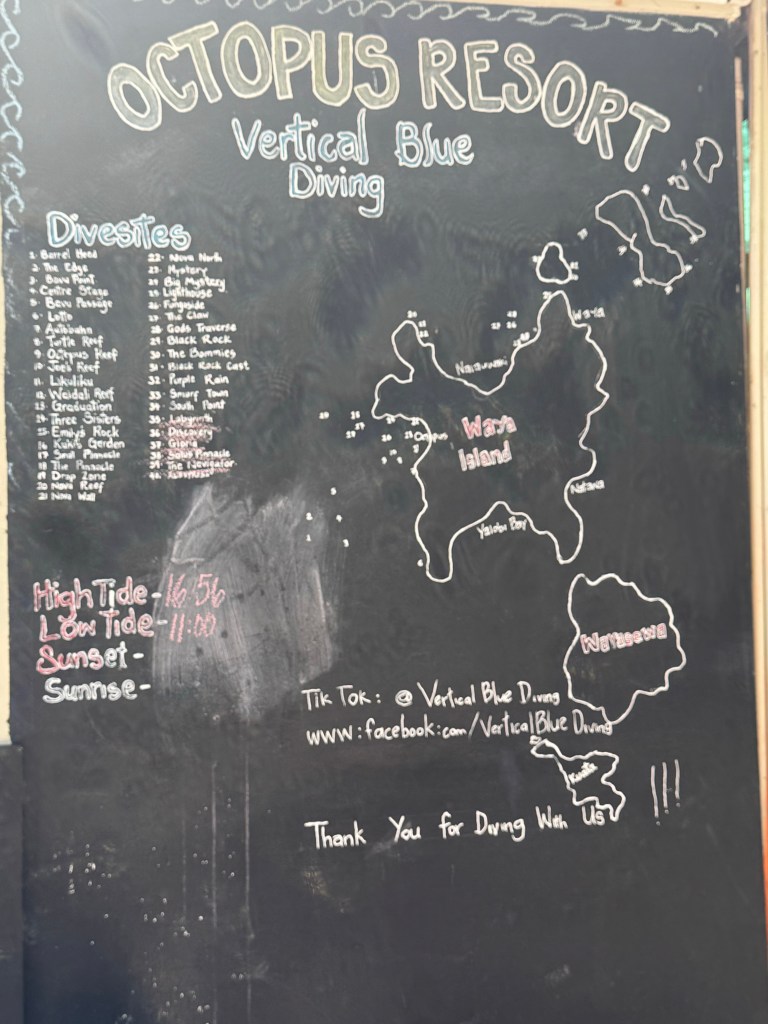 OCTOPUS RESORT
Vertical Blue
Diving
Divesites
1. Barrel Head
2. The Edge
3. Bavu Point
4. Centre Stage
5. Bavu Passage
6. Lotto
7. Autobahn
8. Turtle Reef
9. Octopus Reef
10. Joe's Reef
11. Likuliku
12. Waidali Reef
13. Graduation
14. Three Sisters
15. Emily's Rock
16. Kuki's Garden
17. Small Pinnacle
18. The Pinnacle
19. Drop Zone
20. Nova Reef
21. Nova Wall
22. Nova North
23. Mystery
24. Big Mystery
25. Lighthouse
26. Fungaside
27. The Claw
28. Gods Traverse
29. Black Rock
30. The Bommies
31. Black Rock East
32. Purple Rain
33. Smurf Town
34. South Point
35. Labyrinth
36. Discovery
37. Gloria
38. Solus Pinnacle
39. The Navigator
Waya
Waya
Island
Yalobi Bay
High Tide - 16:56
Low Tide - 11:00
Sunset -
Sunrise -
Wayasewa
Tik Tok: @ Vertical Blue Diving
www:facebook:com/VerticalBlue Diving
Kuata
Thank You for Diving With Us !!!